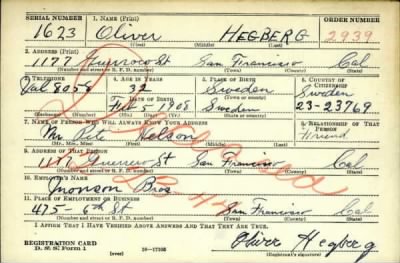 SERIAL NUMBER 1. NAME (Print) ORDER NUMBER
1623 Oliver HEGBERG 2939
(First) (Middle) (Last)
2. ADDRESS (Print)
1177 Guerrero St San Francisco Cal
(Number and street or R. F. D. number) (Town) (County) (State)
3. TELEPHONE 4. AGE IN YEARS 5. PLACE OF BIRTH 6. COUNTRY OF CITIZENSHIP
Val 8058 32 Sweden Sweden
DATE OF BIRTH
Feb 1 1908 Sweden 23-23769
(Exchange) (Number) (Mo.) (Day) (Yr.) (State or country)
7. NAME OF PERSON WHO WILL ALWAYS KNOW YOUR ADDRESS 8. RELATIONSHIP OF THAT PERSON
Mr Pete Nelson Friend
(Mr., Mrs., Miss) (First) (Middle) (Last)
9. ADDRESS OF THAT PERSON
1177 Guerrero St San Francisco Cal
(Number and street or R. F. D. number) (Town) (County) (State)
10. EMPLOYER'S NAME
Monson Bros
11. PLACE OF EMPLOYMENT OR BUSINESS
475 - 6th St San Francisco Cal
(Number and street or R. F. D. number) (Town) (County) (State)
I AFFIRM THAT I HAVE VERIFIED ABOVE ANSWERS AND THAT THEY ARE TRUE.
REGISTRATION CARD
D. S. S. Form 1 (over) 16-17105 Oliver Hegberg
(Registrant's signature)